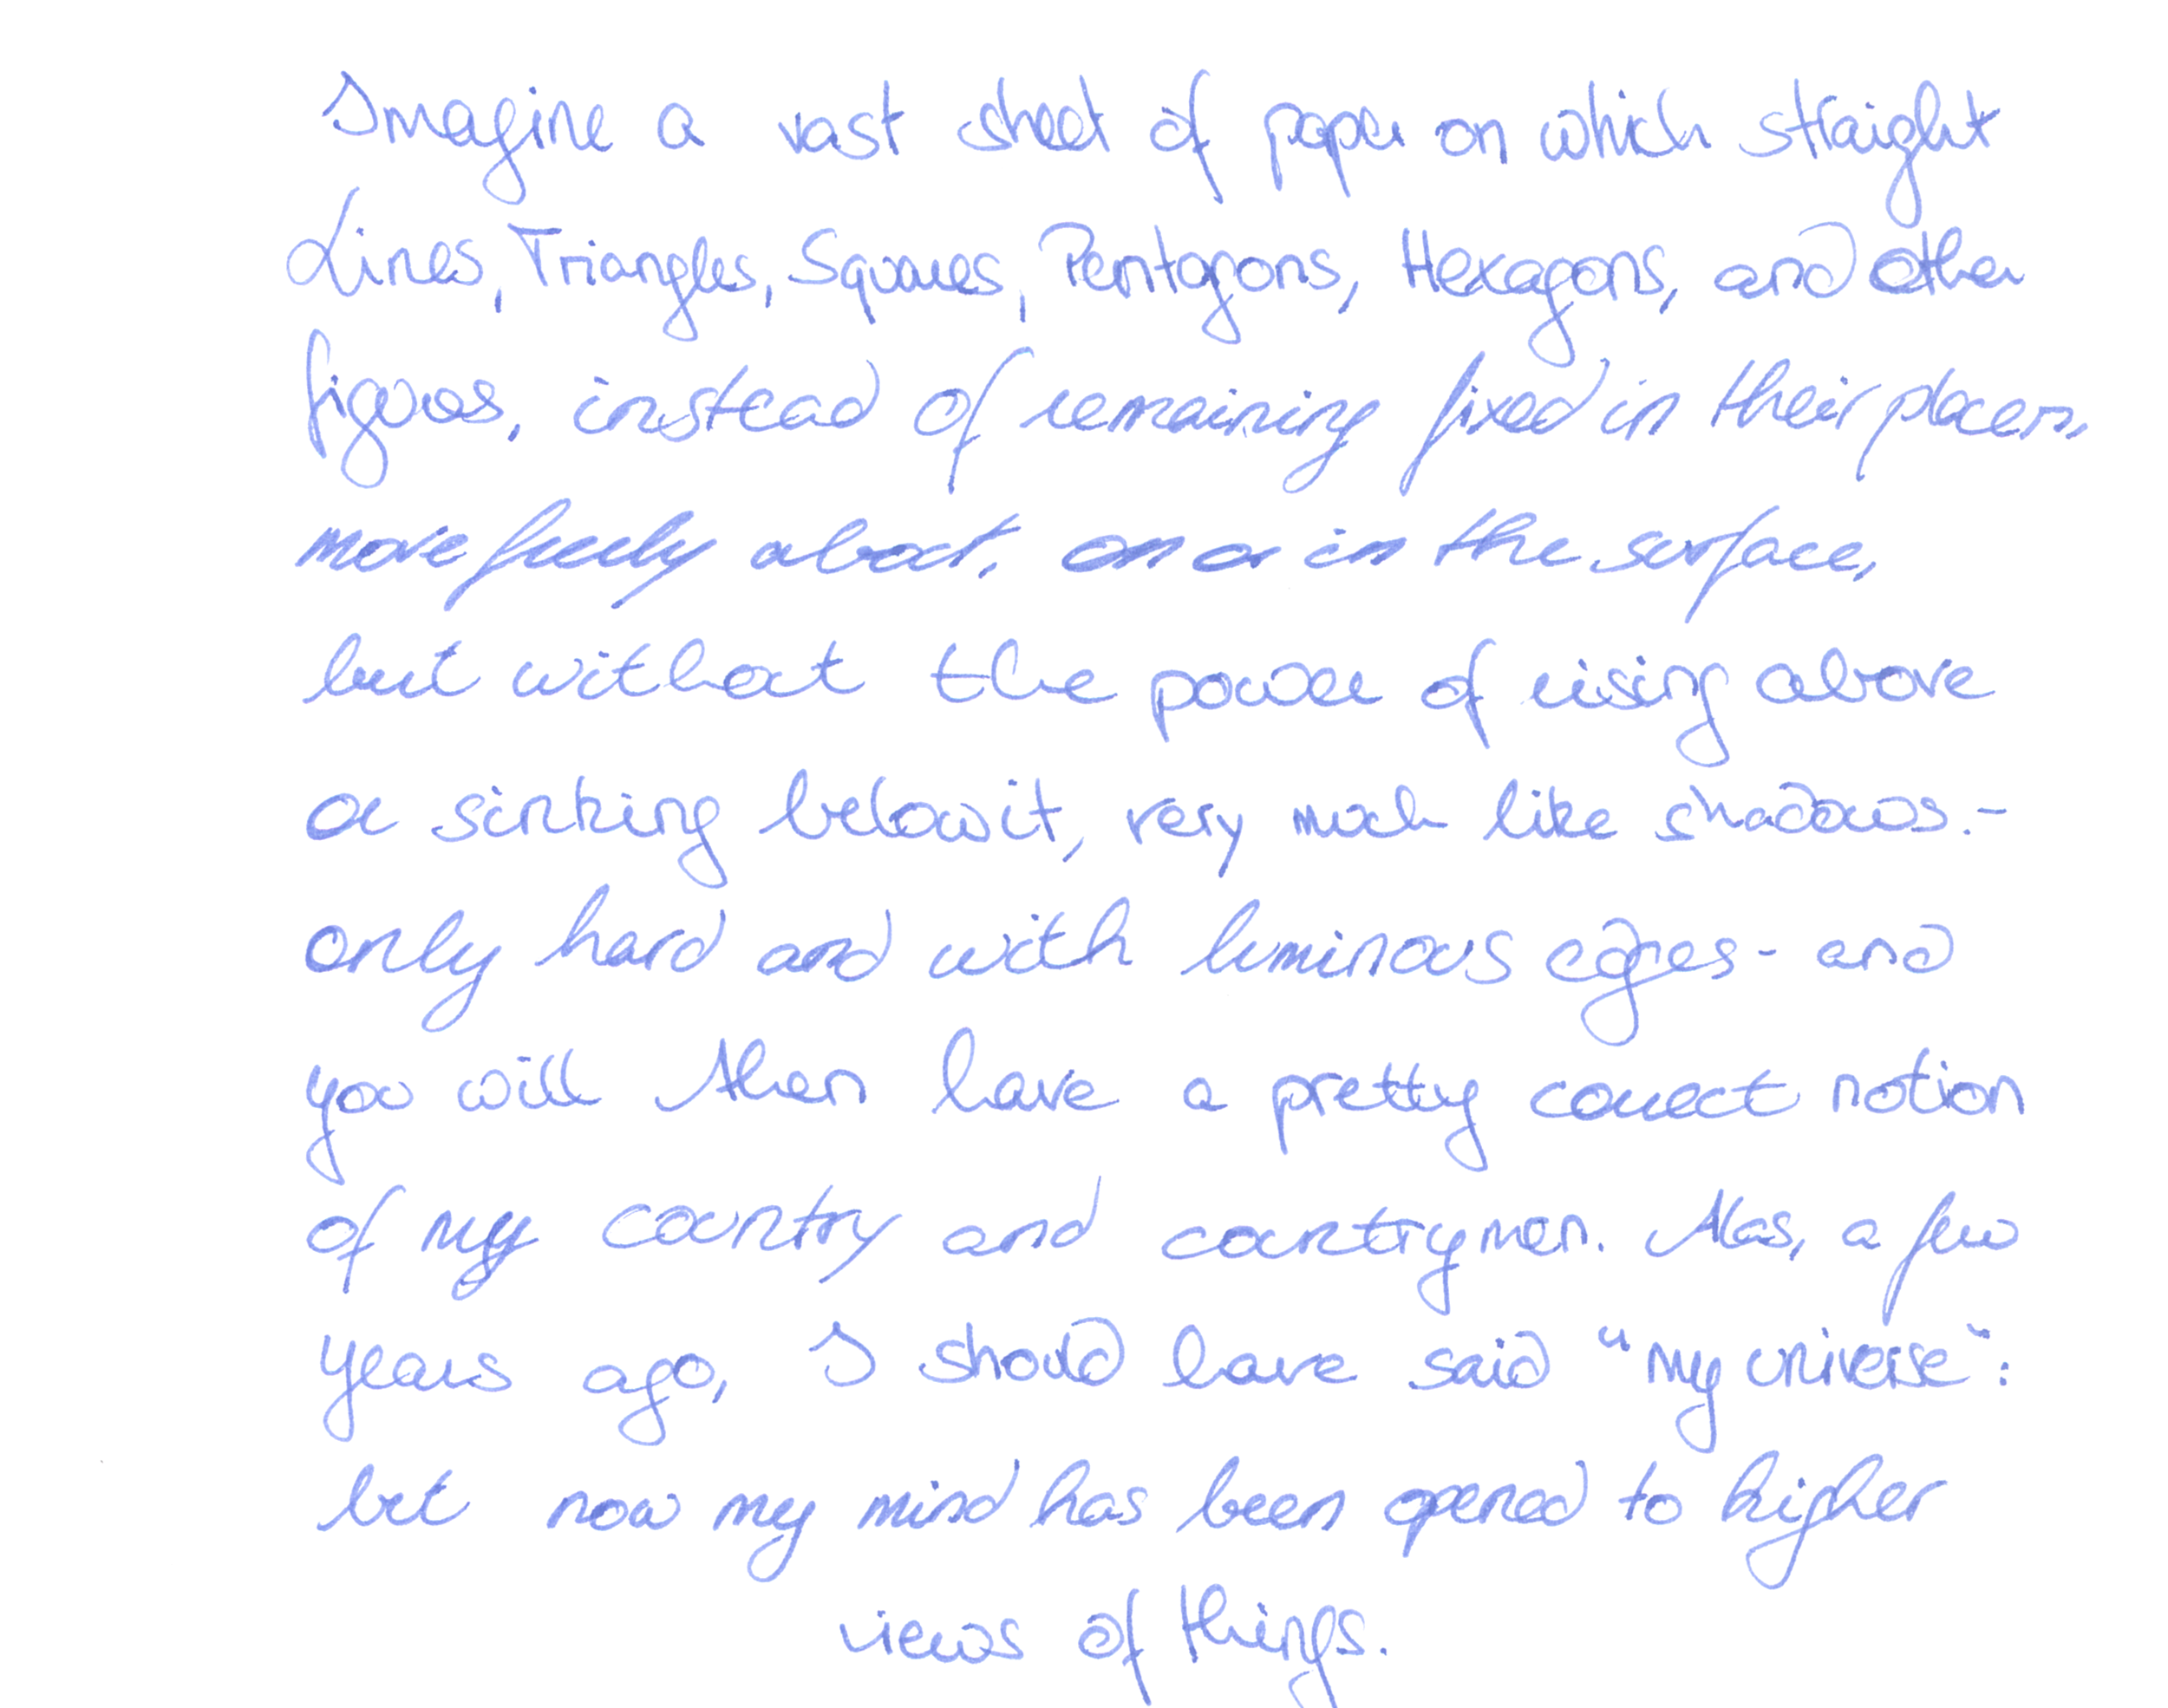 Imagine a vast sheet of paper on which straight
Lines, Triangles, Squares, Pentagons, Hexagons, and other
figures, instead of remaining fixed in their places,
move freely about, on or in the surface,
but without the power of rising above
or sinking below it, very much like shadows. -
only hard and with luminous edges - and
you will then have a pretty correct notion
of my country and countrymen. Alas, a few
years ago, I should have said "my universe":
but now my mind has been opened to higher
views of things.